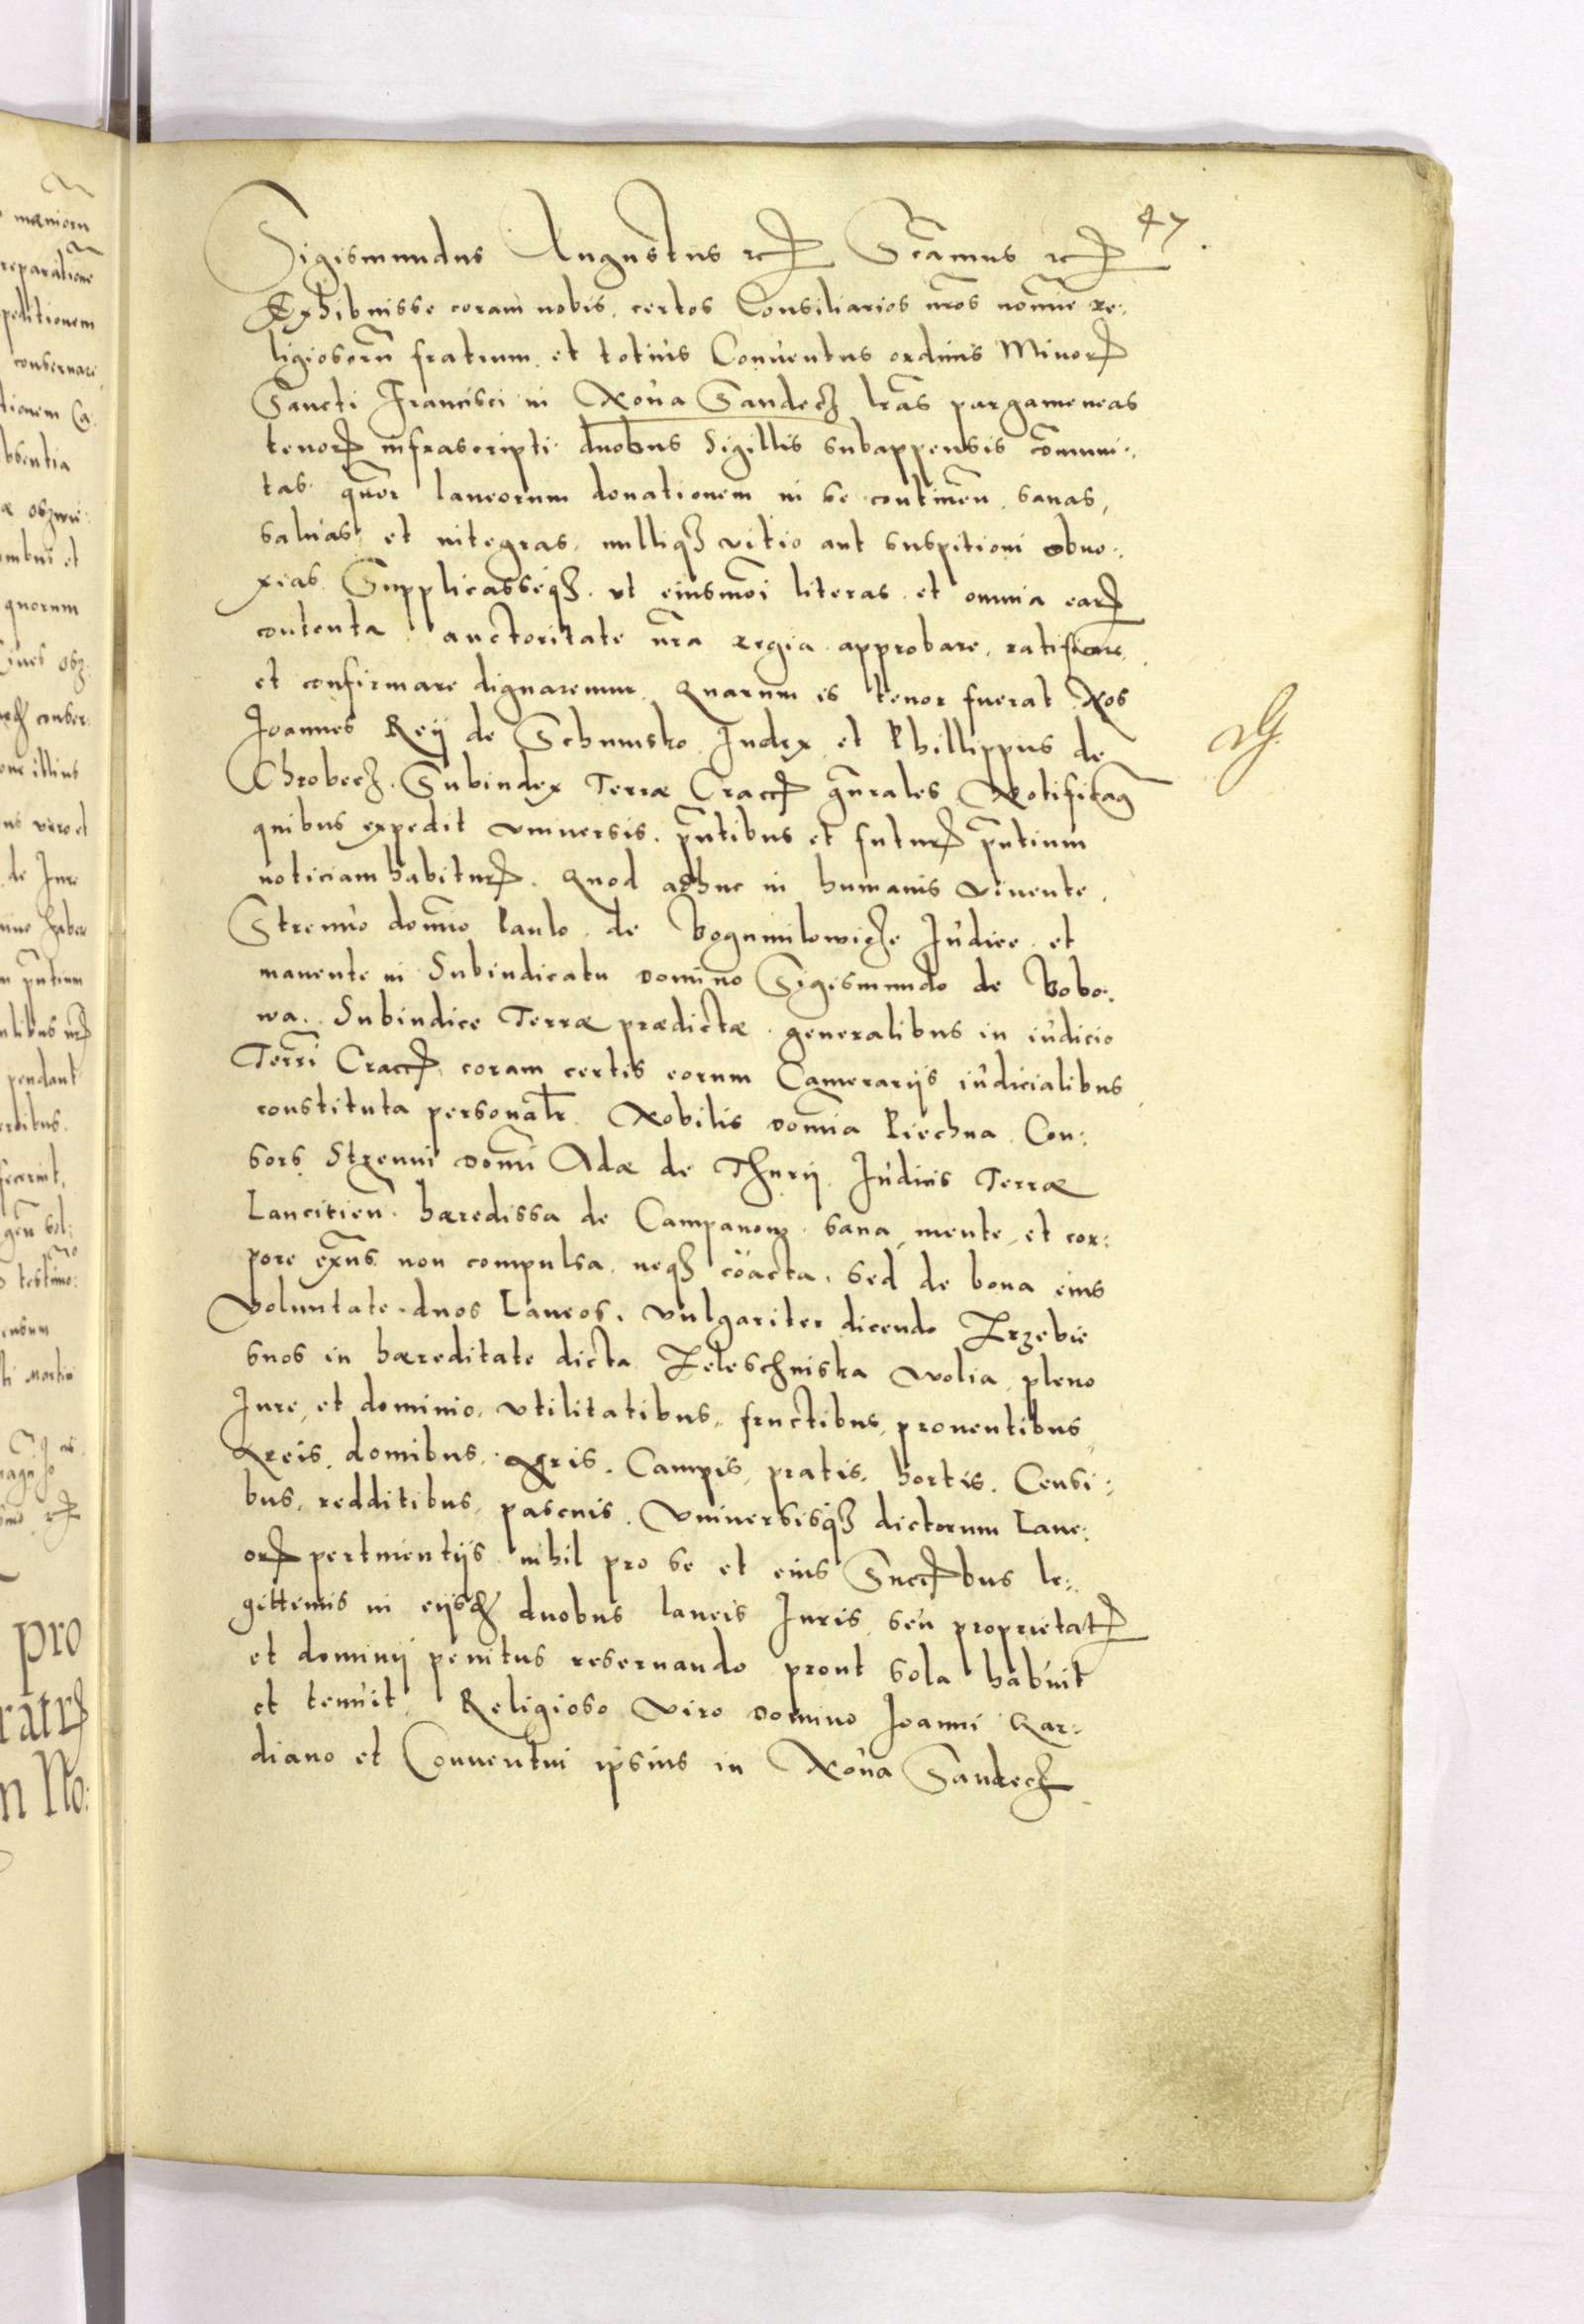 47
Sigismundus Augustus etc Scamus etc
Exhibuisse coram nobis, certos Consiliarios nros nomine re:
ligiosorum fratrum et totius Conuentus ordinis Minor
Sancti Francisci in Noua Sandecz lras pargameneas
tenor infrascripti duobus Sigillis subappensis communi:
tas quor laneorum donationem in se continen, sanas,
saluas et integras, nulliq vitio aut suspitioni obno:
xias Supplicasseq, ut eiusmoi literas et omnia ear
contenta auctoritate nra regia approbare, ratificare
et confirmare dignaremur. Quarum is tenor fuerat. Nos
Joannes Rey de Schumsko Judex et Phillippus de
Chrobecz Subiudex Terræ Cracc gnrales Notificam
quibus expedit vniuersis, pntibus et futur pntium
noticiam habitur. Quod adhuc in humanis viuente,
Strenuo domno Paulo de Bogumilowicze Judice et
manente in Subiudicatu domino Sigismundo de Bobo:
wa Subiudice Terræ prædictæ generalibus in iudicio
Terri Cracc coram certis eorum Camerarijs iudicialibus
constituta personalr Nobilis domna Piechna Con:
sors Strenui domni Adæ de Thurij Judicis Terræ
Lancicien hæredissa de Campanow sana mente et cor:
pore exns non compulsa neq coacta, sed de bona eius
voluntate duos Laneos, vulgariter dicendo Zrzebie
suos in hæreditate dicta Zeleschniska wolia, pleno
Jure et dominio, vtilitatibus, fructibus, prouentibus
Areis, domibus, agris, Campis, pratis, hortis, Censi:
bus, redditibus, pascuis, Vniuersisq dictorum Lane:
or pertinentijs nihil pro se et eius Succbus le:
gittimis in eijsd duobus laneis Juris seu proprietat
et dominij penitus reseruando prout sola habuit
et tenuit, Religioso viro domino Joanni Gar:
diano et Conuentui ipsius in Noua Sandecz